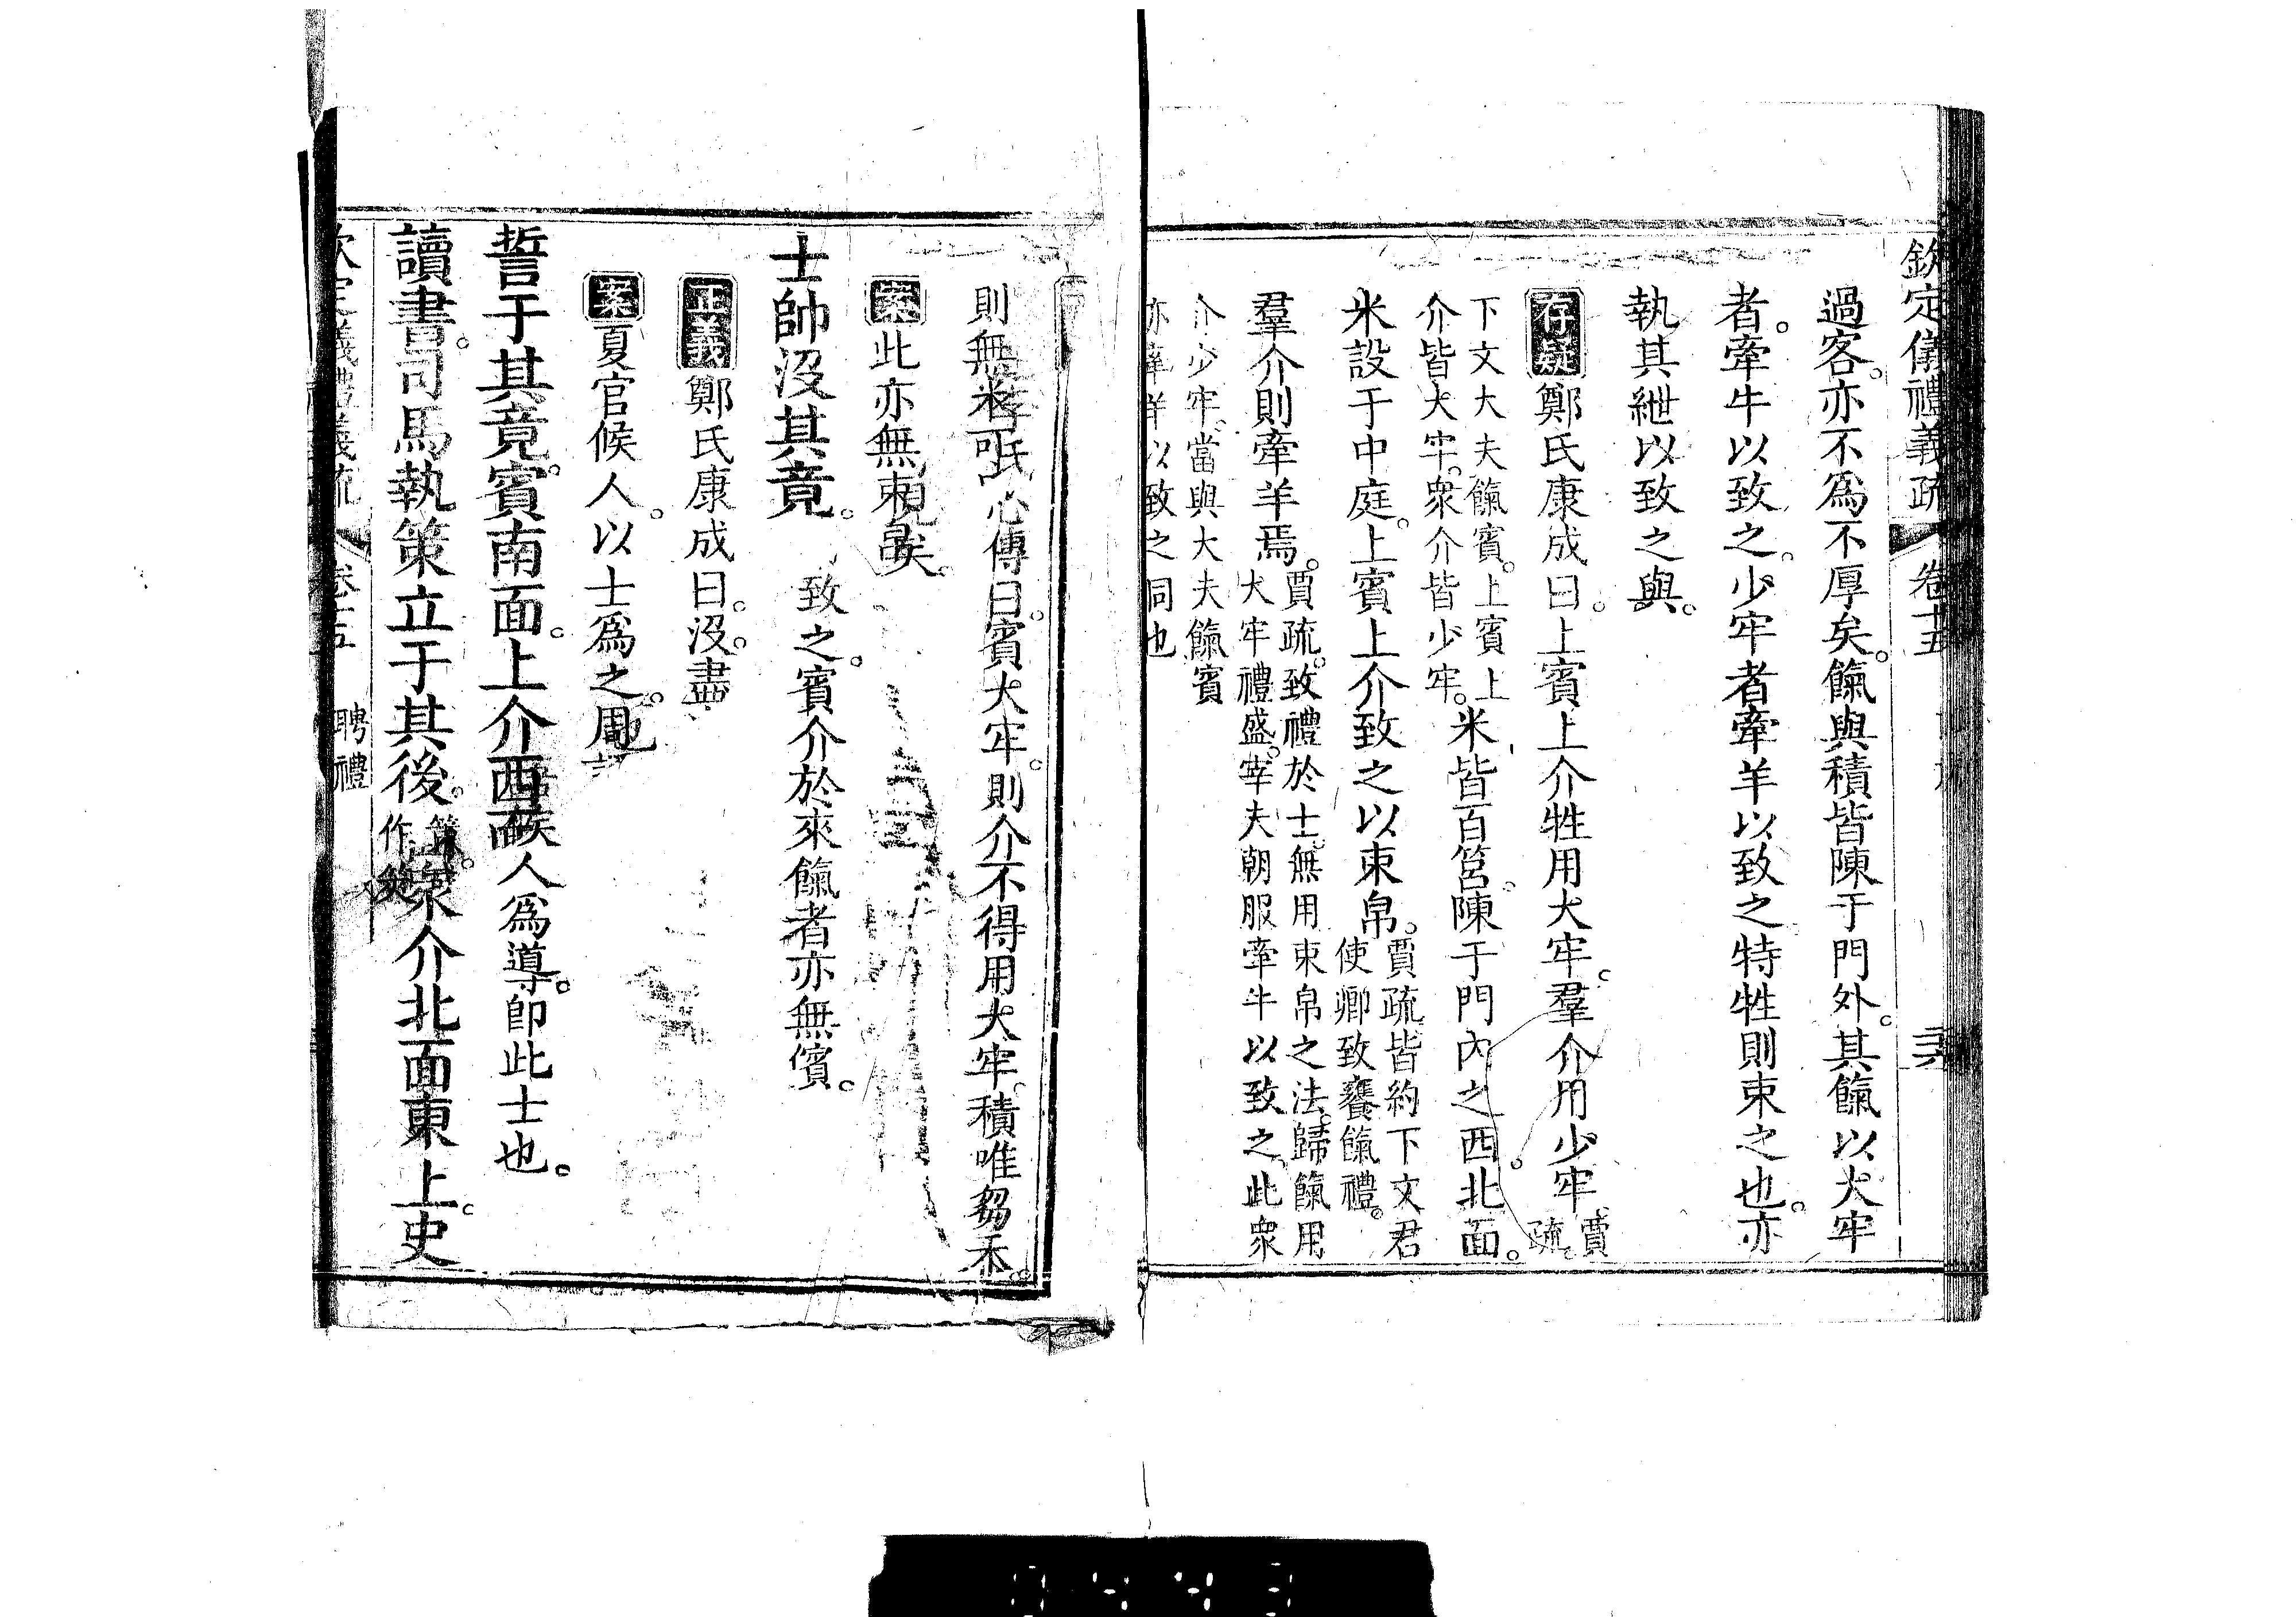 欽定儀禮義疏 卷十五
過客。亦不爲不厚矣。餼與積皆陳于門外。其餼以大牢
者。牽牛以致之。少牢者牽羊以致之特牲則束之也。亦
執其紲以致之與。
存疑鄭氏康成曰。上賓上介牲用大牢。羣介用少牢。賈疏。
下文大夫餼賓。上賓上介皆大牢。衆介皆少牢。米皆百筥。陳于門內之西北面。
米設于中庭。上賓上介致之以束帛。賈疏皆約下文君使卿致饔餼禮。
羣介則牽羊焉。賈疏。致禮於士。無用束帛之法。歸餼用大牢禮盛。宰夫朝服牽牛以致之。此衆
介少牢。當與大夫餼賓
亦牽羊以致之同也
則無米 氏心傳曰。賓大牢。則介不得用大牢。積唯芻禾。
案此亦無束 矣。
致之。賓介於來餼者亦無儐。
士帥沒其竟。
正義鄭氏康成曰。沒。盡
案夏官候人。以士爲之。周
候人爲導。卽此士也。
誓于其竟。賓南面。上介西面
讀書。司馬執策立于其後。
衆介北面東上。史
欽定儀禮義疏 卷十五 聘禮